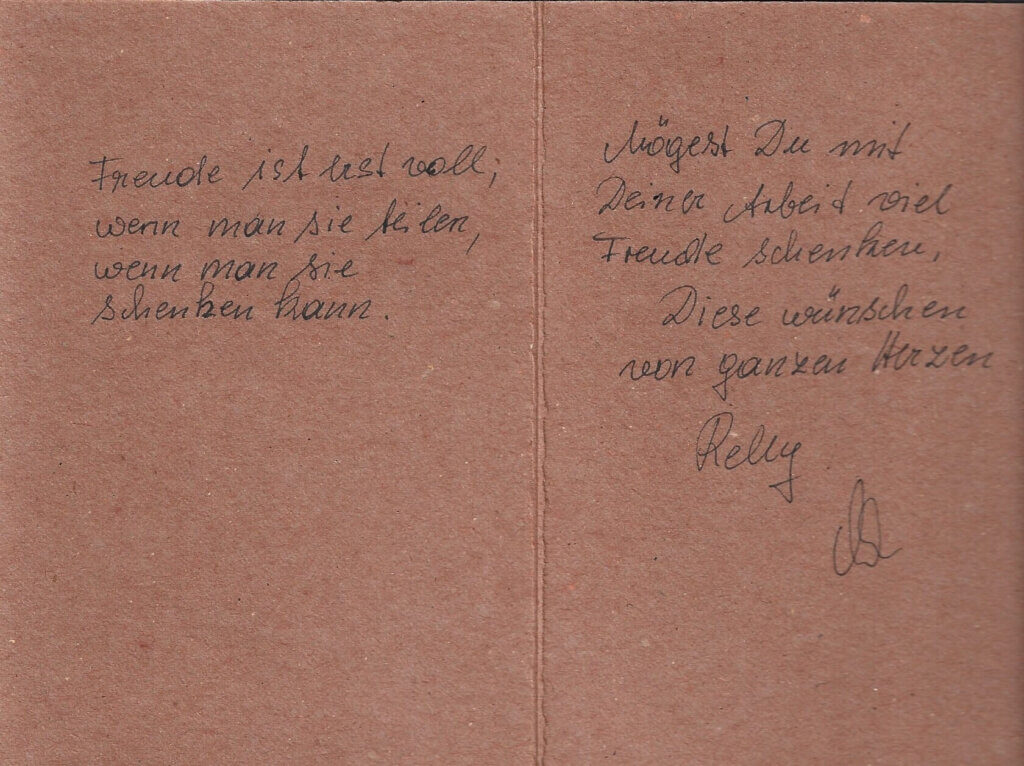 Freude ist erst voll,
wenn man sie teilen,
wenn man sie
schenken kann.
Mögest Du mit
Deiner Arbeit viel
Freude schenken,
Diese wünschen
von ganzen Herzen
Relly